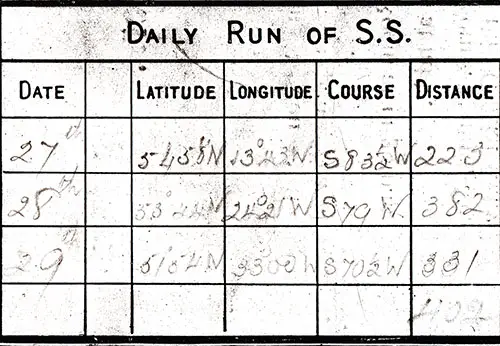 DAILY RUN OF S.S.
DATE LATITUDE LONGITUDE COURSE DISTANCE
27th 54°58'N 13°23'W S83½W 223
28th 53°44'N 24°21'W S79W. 382
29th 51°54'N 33°00'W S70½W 331
402